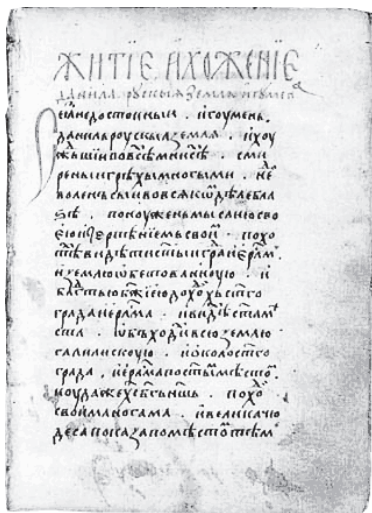 ЖИТЇЕ ИХОЖЕНЇЕ
данила рускыѧ земли игуме
еꙗ҆недостоиныи . игоумень
данила роускыа землѧ . ихоу
жьшїи повсѣ мнисѣ . сми
реныи грѣхы многыми . не
воленъ сыи вовсѧкѡ дѣле бла
ѕѣ . поноуженъ мыслїю сво
ею и нетерпѣнїемь свои . похо
тѣ видѣти ст҃ыи гра ерлм
и҆землю ѡбѣтованноую . и
блг҃тью бж҃їею доходихъ ст҃го
града иерлма . и видѣ ст҃аа мѣ
ста . ѡбьходи всю землю
галилискоую . и ѡколо ст҃го
града . иерлма по ст҃ы мѣсто
коуда же х҃с б҃ъ н҃шь . похо
своима ногама . и великаа чю
деса показа по мѣсто тѣм